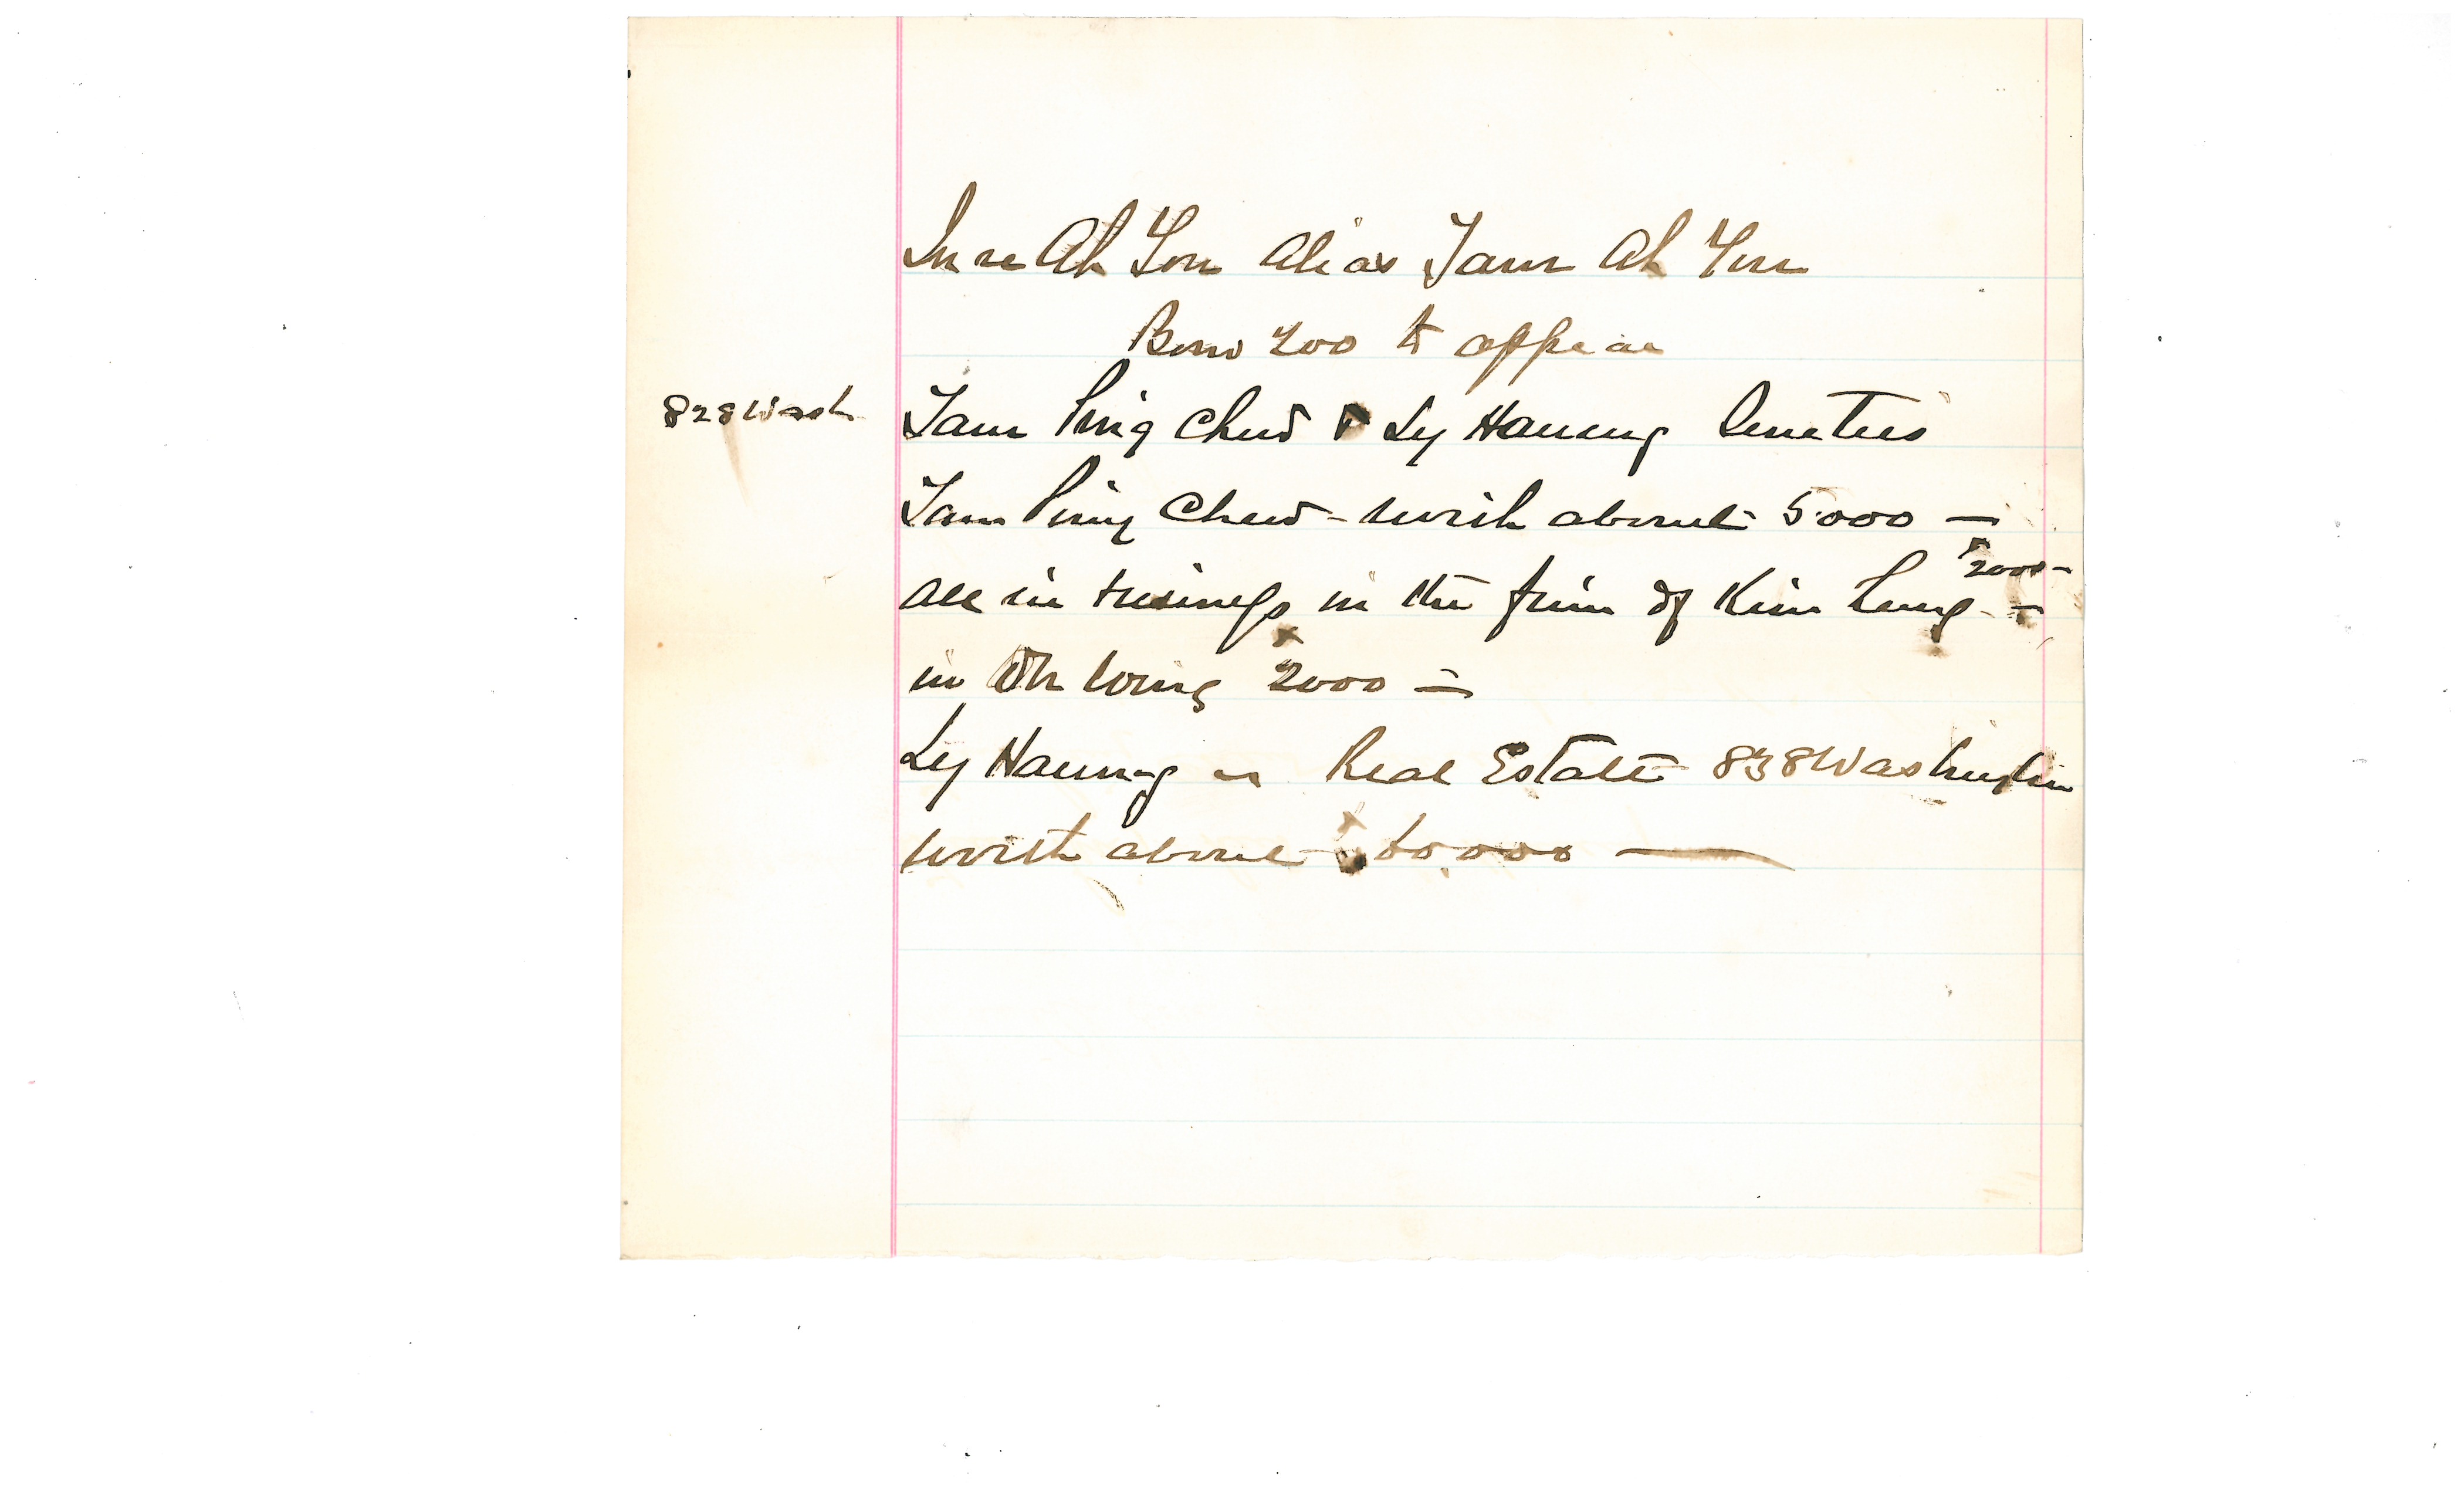 In re Ah Yon alias Tam Ah Yon
Bond 200 to appear
828 Wash
Tam Ping Chew & Ly Haung Sureties
Tam Ping Chew - worth about 5000 —
all in business in the firm of Kim Lung - 2000 -
in Wing 2000 —
Ly Haung Real Estate 838 Washington
worth about